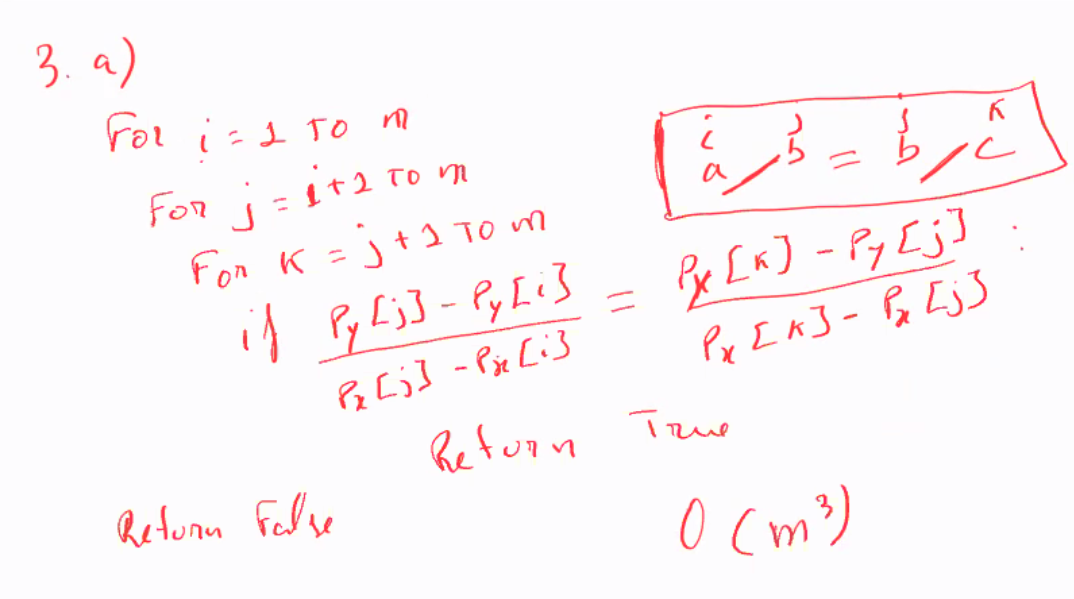 3. a)
For i = 1 TO m
For j = i+1 TO m
For K = j+1 TO m
if (Py[j] - Py[i]) / (Px[j] - Px[i]) = (Px[K] - Py[j]) / (Px[K] - Px[j]) :
Return True
Return False
O(m³)
i j j K
a b = b c